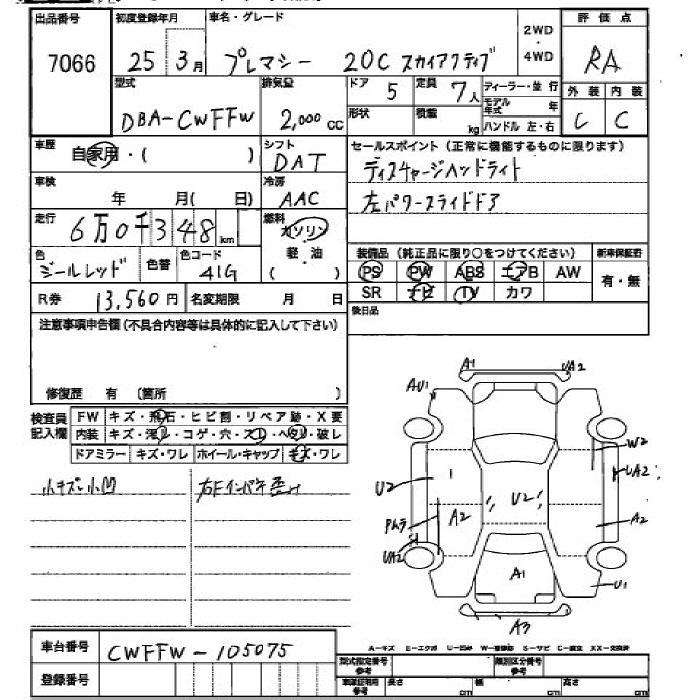 出品番号 初度登録年月 車名・グレード 2WD・4WD 評価点
7066 25年3月 プレマシー 20C スカイアクティブ RA
型式 排気量 ドア 定員 ディーラー・並行 外装 内装
DBA-CWFFW 2,000 CC 5 7人 モデル年式 年 C C
形状 積載 kg ハンドル 左・右
車歴 自家用・( ) シフト DAT セールスポイント(正常に機能するものに限ります)
ディスチャージヘッドライト
車検 年 月( 日) 冷房 AAC 左パワースライドドア
走行 6万0千348km 燃料 ガソリン・軽油 ( )
色 ジールレッド 色替 色コード 41G
装備品(純正品に限り○をつけてください) 新車保証書
PS PW ABS エアB AW 有・無
SR ナビ TV カワ
R券 13,560円 名変期限 月 日 後日品
注意事項申告欄(不具合内容等は具体的に記入して下さい)
修復歴 有 (箇所 )
検査員記入欄 FW キズ・飛石・ヒビ割・リペア跡・X要
内装 キズ・汚れ・コゲ・穴・スレ・ヘタリ・破レ
ドアミラー キズ・ワレ ホイール・キャップ キズ・ワレ
小キズ小凹 右Fインパネ歪み
A1 UA2
AU1
W2
UA2
U2 1 U2
A2 A2
UA2
A1 U1
A3
A-キズ E-エクボ U-凹み W-補修跡 S-サビ C-腐食 XX-交換済
車台番号 CWFFW-105075
登録番号
型式指定番号 参考 類別区分番号 参考
長さ cm 幅 cm 高さ cm